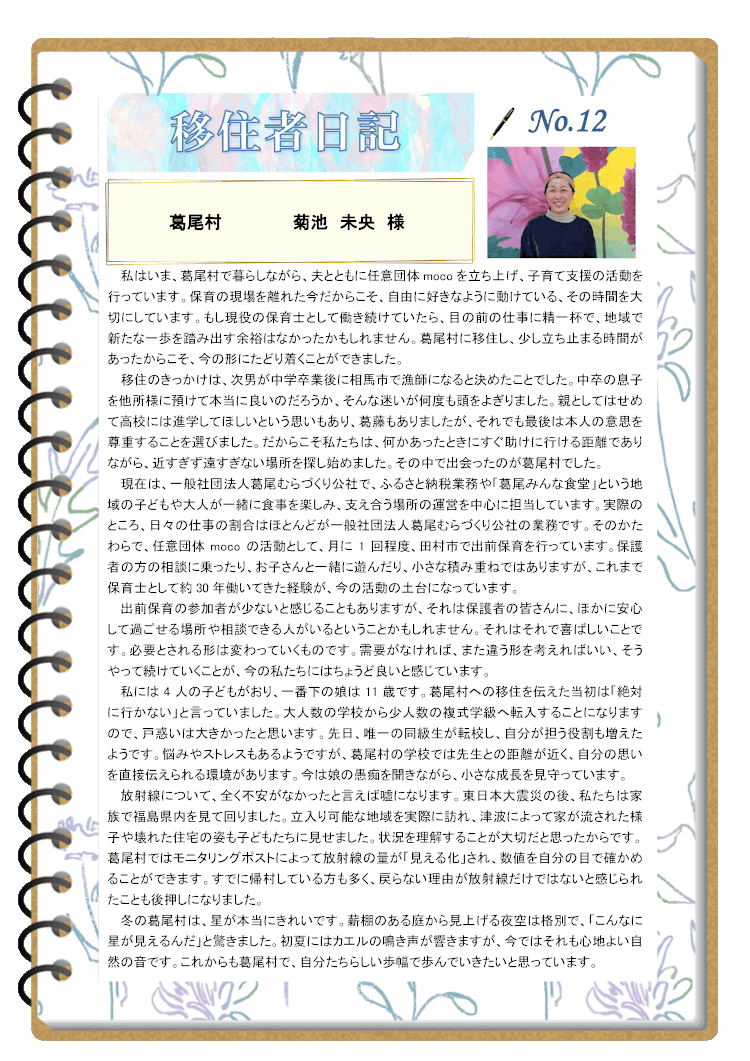 移住者日記
No.12
葛尾村　　　　菊池　未央　様
私はいま、葛尾村で暮らしながら、夫とともに任意団体 moco を立ち上げ、子育て支援の活動を
行っています。保育の現場を離れた今だからこそ、自由に好きなように動けている、その時間を大
切にしています。もし現役の保育士として働き続けていたら、目の前の仕事に精一杯で、地域で
新たな一歩を踏み出す余裕はなかったかもしれません。葛尾村に移住し、少し立ち止まる時間が
あったからこそ、今の形にたどり着くことができました。
移住のきっかけは、次男が中学卒業後に相馬市で漁師になると決めたことでした。中卒の息子
を他所様に預けて本当に良いのだろうか、そんな迷いが何度も頭をよぎりました。親としてはせめ
て高校には進学してほしいという思いもあり、葛藤もありましたが、それでも最後は本人の意思を
尊重することを選びました。だからこそ私たちは、何かあったときにすぐ助けに行ける距離であり
ながら、近すぎず遠すぎない場所を探し始めました。その中で出会ったのが葛尾村でした。
現在は、一般社団法人葛尾むらづくり公社で、ふるさと納税業務や「葛尾みんな食堂」という地
域の子どもや大人が一緒に食事を楽しみ、支え合う場所の運営を中心に担当しています。実際の
ところ、日々の仕事の割合はほとんどが一般社団法人葛尾むらづくり公社の業務です。そのかた
わらで、任意団体 moco の活動として、月に 1 回程度、田村市で出前保育を行っています。保護
者の方の相談に乗ったり、お子さんと一緒に遊んだり、小さな積み重ねではありますが、これまで
保育士として約 30 年働いてきた経験が、今の活動の土台になっています。
出前保育の参加者が少ないと感じることもありますが、それは保護者の皆さんに、ほかに安心
して過ごせる場所や相談できる人がいるということかもしれません。それはそれで喜ばしいことで
す。必要とされる形は変わっていくものです。需要がなければ、また違う形を考えればいい、そう
やって続けていくことが、今の私たちにはちょうど良いと感じています。
私には 4 人の子どもがおり、一番下の娘は 11 歳です。葛尾村への移住を伝えた当初は「絶対
に行かない」と言っていました。大人数の学校から少人数の複式学級へ転入することになります
ので、戸惑いは大きかったと思います。先日、唯一の同級生が転校し、自分が担う役割も増えた
ようです。悩みやストレスもあるようですが、葛尾村の学校では先生との距離が近く、自分の思い
を直接伝えられる環境があります。今は娘の愚痴を聞きながら、小さな成長を見守っています。
放射線について、全く不安がなかったと言えば嘘になります。東日本大震災の後、私たちは家
族で福島県内を見て回りました。立入り可能な地域を実際に訪れ、津波によって家が流された様
子や壊れた住宅の姿も子どもたちに見せました。状況を理解することが大切だと思ったからです。
葛尾村ではモニタリングポストによって放射線の量が「見える化」され、数値を自分の目で確かめ
ることができます。すでに帰村している方も多く、戻らない理由が放射線だけではないと感じられ
たことも後押しになりました。
冬の葛尾村は、星が本当にきれいです。薪棚のある庭から見上げる夜空は格別で、「こんなに
星が見えるんだ」と驚きました。初夏にはカエルの鳴き声が響きますが、今ではそれも心地よい自
然の音です。これからも葛尾村で、自分たちらしい歩幅で歩んでいきたいと思っています。